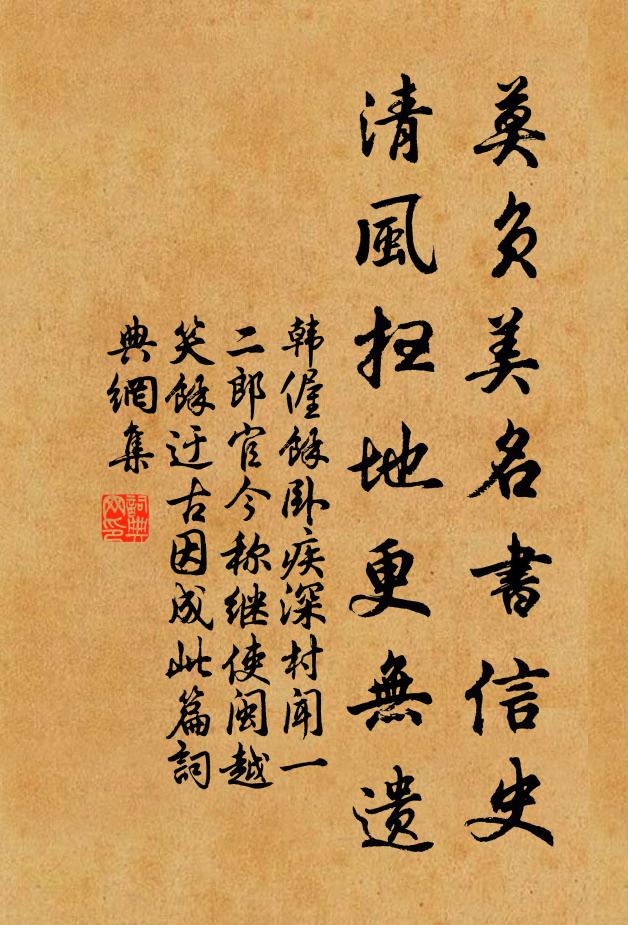 莫负美名書信史
清風扫地更無遗
韩偓餘卧疾深村闻一
二郎官今称继使闽越
笑餘迂古因成此篇詞
典網集
詞典网印